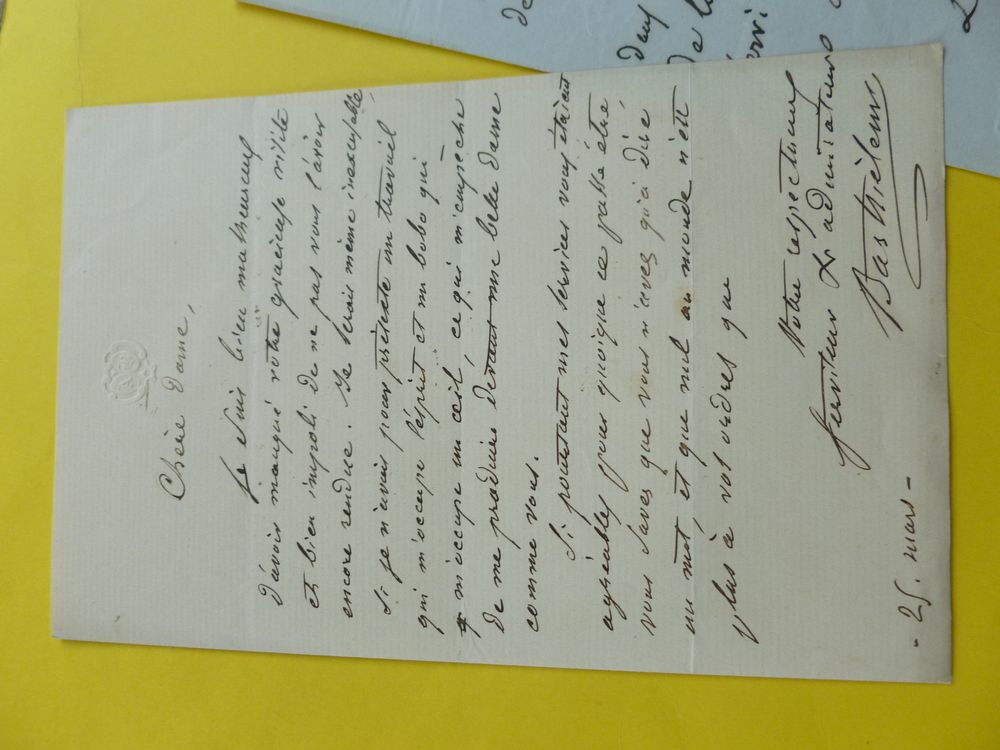 Chère Dame,
Je suis bien malheureux
d'avoir manqué votre gracieuse visite
et bien impoli de ne pas vous l'avoir
encore rendue. Je serais même inexcusable,
si je n'avais pour prétexte un travail
qui m'occupe l'esprit et un bobo qui
m'occupe un œil, ce qui m'empêche
de me produire devant une belle dame
comme vous.
Si pourtant mes services vous étaient
agréables pour quoique ce puisse être
vous savez que vous n'avez qu'à dire
un mot et que nul au monde n'est
plus à vos ordres que
Votre respectueux
serviteur & admirateur
- 25. mars -
de